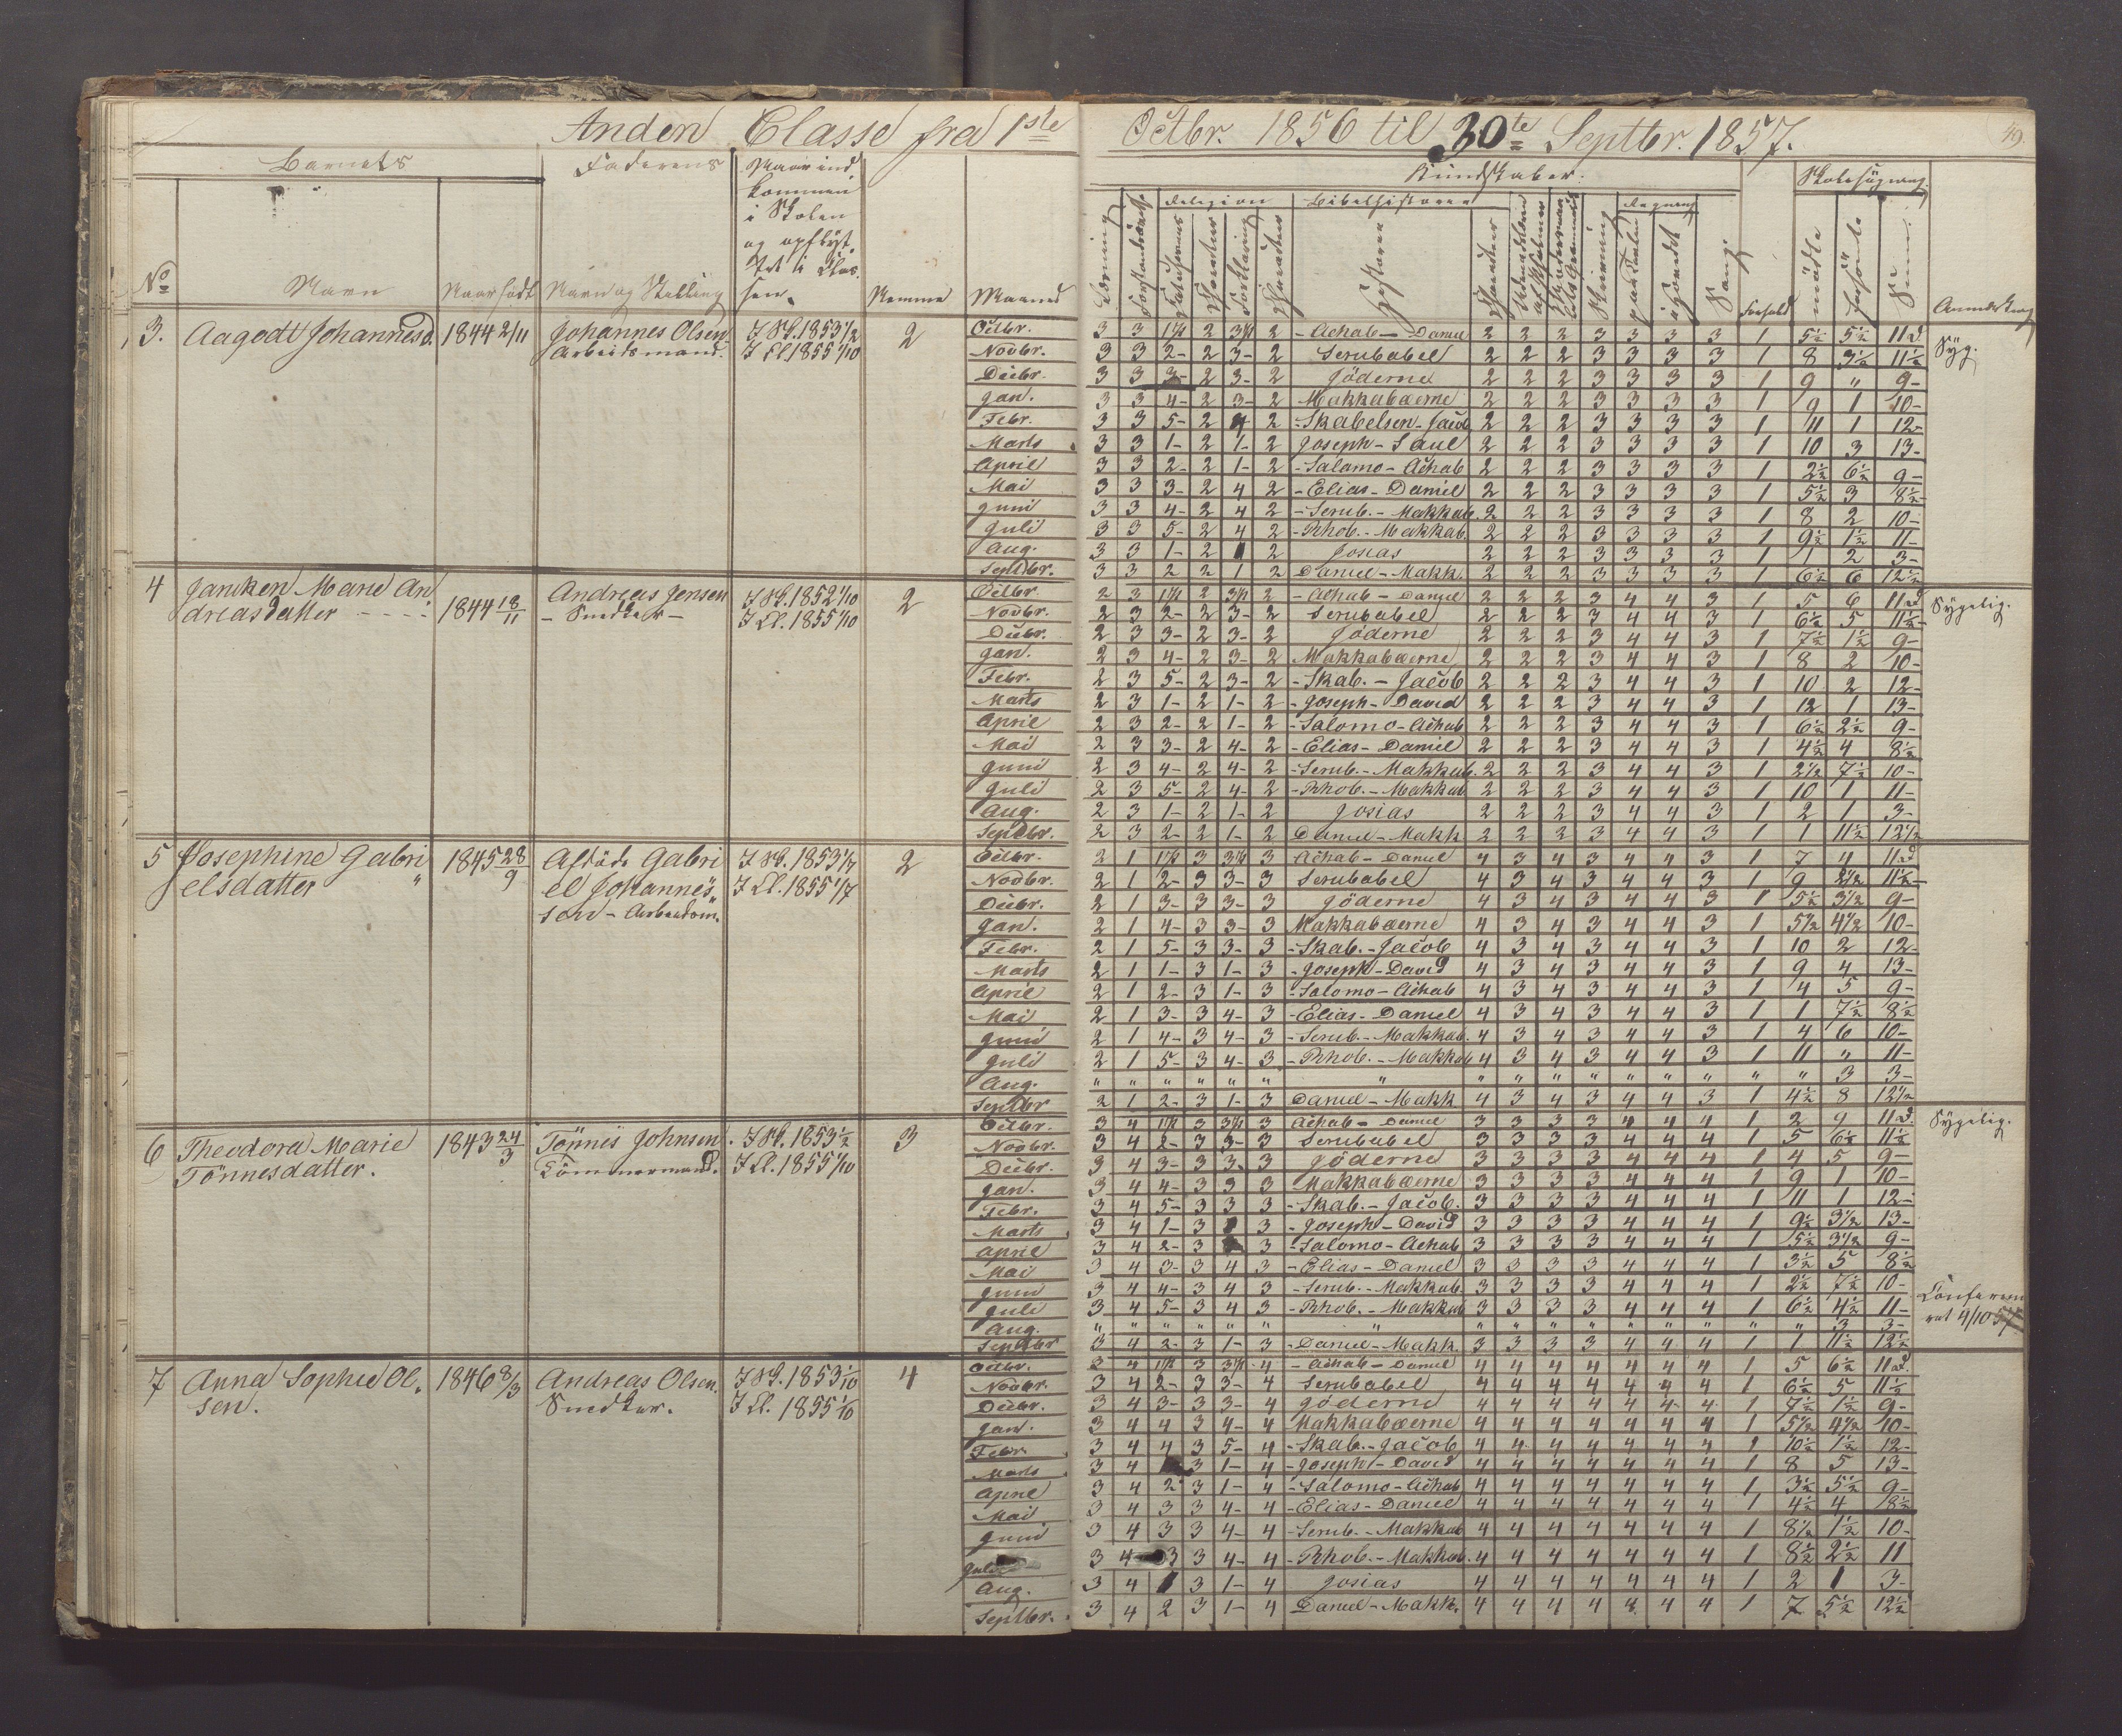 Anden Classe fra 1ste Octbr. 1856 til 30te Septbr. 1857.
49.
Barnets
Faderens
Naar ind
kommen
i Skolen
og opflyt
tet i Clas
sen.
No
Navn
Naar født
Navn og Stilling
Nemme
Maaned
Kundskaber.
Skolesøgning
Religion
Bibelhistorie
Regning
Læsning
Historie
Skrivning
paa Tavlen
i Hovedet
Sang
Forhold
mødte
forsømte
Sum.
Anmærkning
3. Aagodt Johannesd. 1844 2/11 Johannes Olsen I Sk. 1853 1/2 2
Arbeidsmand. I Cl. 1855 1/10
Octbr. 3 3 1 1/2 2 3 1/2 2 - Achab - Daniel 2 2 2 3 3 3 3 1 5 1/2 5 1/2 11 d. Syg.
Novbr. 3 3 2- 2 3- 2 Serubabel 2 2 2 3 3 3 3 1 8 3 1/2 11 1/2
Decbr. 3 3 3- 2 3- 2 Jöderne 2 2 2 3 3 3 3 1 9 " 9-
Jan. 3 3 4- 2 3- 2 Makkabæerne 2 2 2 3 3 3 3 1 9 1 10-
Febr. 3 3 5- 2 2 - Skabelsen - Jacob 2 2 2 3 3 3 3 1 11 1 12-
Marts 3 3 1- 2 1- 2 Joseph - Saul 2 2 2 3 3 3 3 1 10 3 13-
April 3 3 2- 2 1- 2 - Salomo - Achab 2 2 2 3 3 3 3 1 2 1/2 6 1/2 9-
Mai 3 3 3- 2 4 2 - Elias - Daniel 2 2 2 3 3 3 3 1 5 1/2 3 8 1/2-
Juni 3 3 4- 2 4 2 - Serub. - Makkab. 2 2 2 3 3 3 3 1 8 2 10-
Juli 3 3 5- 2 4 2 - Rhob. - Makkab. 2 2 2 3 3 3 3 1 9 1/2 1 1/2 11-
Aug. 3 3 1- 2 1 2 Josias 2 2 2 3 3 3 3 1 1 2 3-
Septbr. 3 3 2 2 1 2 Daniel - Makk. 2 2 2 3 3 3 3 1 6 1/2 6 12 1/2
4 Janiken Marie An 1844 18/11 Andreas Jensen I Sk. 1852 1/10 2
dreasdatter - Snedker - I Cl. 1855 1/10
Octbr. 2 3 1 1/2 2 3 1/2 2 - Achab - Daniel 2 2 2 3 4 4 3 1 5 6 11 d. Sygelig.
Novbr. 2 3 2- 2 3- 2 Serubabel 2 2 2 3 4 4 3 1 6 1/2 5 11 1/2-
Decbr. 2 3 3- 2 3- 2 Jöderne 2 2 2 3 4 4 3 1 7 1/2 1 1/2 9-
Jan. 2 3 4- 2 3- 2 Makkabæerne 2 2 2 3 4 4 3 1 8 2 10-
Febr. 2 3 5- 2 3- 2 - Skab. - Jacob 2 2 2 3 4 4 3 1 10 2 12-
Marts 2 3 1- 2 1- 2 - Joseph - David 2 2 2 3 4 4 3 1 12 1 13-
April 2 3 2- 2 1- 2 - Salomo - Achab 2 2 2 3 4 4 3 1 6 1/2 2 1/2 9-
Mai 2 3 3- 2 4- 2 - Elias - Daniel 2 2 2 3 4 4 3 1 4 1/2 4 8 1/2
Juni 2 3 4- 2 4- 2 - Serub. - Makkab. 2 2 2 3 4 4 3 1 2 1/2 7 1/2 10-
Juli 2 3 5- 2 4- 2 - Rhob. - Makkab 2 2 2 3 4 4 3 1 10 1 11-
Aug. 2 3 1- 2 1- 2 Josias 2 2 2 3 4 4 3 1 2 1 3-
Septbr. 2 3 2- 2 1- 2 Daniel - Makk 2 2 2 3 4 4 3 1 1 11 1/2 12 1/2
5 Josephine Gabri 1845 28/9 Afdöde Gabri I Sk. 1853 1/7 2
elsdatter el Johannes I Cl. 1855 1/7
sen - Arbeidsm.
Octbr. 2 1 1 1/2 3 3 1/2 3 Achab - Daniel 4 3 4 3 4 4 3 1 7 4 11 d
Novbr. 2 1 2- 3 3- 3 Serubabel 4 3 4 3 4 4 3 1 9 2 1/2 11 1/2-
Decbr. 2 1 3- 3 3- 3 Jöderne 4 3 4 3 4 4 3 1 5 1/2 3 1/2 9-
Jan. 2 1 4- 3 3- 3 Makkabæerne 4 3 4 3 4 4 3 1 5 1/2 4 1/2 10-
Febr. 2 1 5- 3 3- 3 - Skab. - Jacob 4 3 4 3 4 4 3 1 10 2 12-
Marts 2 1 1- 3 1- 3 - Joseph - David 4 3 4 3 4 4 3 1 9 4 13-
April 2 1 2- 3 1- 3 - Salomo - Achab 4 3 4 3 4 4 3 1 4 5 9-
Mai 2 1 3- 3 4- 3 - Elias - Daniel 4 3 4 3 4 4 3 1 1 7 1/2 8 1/2
Juni 2 1 4- 3 4- 3 - Serub. - Makkab. 4 3 4 3 4 4 3 1 4 6 10-
Juli 2 1 5- 3 4- 3 - Rhob. - Makkab 4 3 4 3 4 4 3 1 11 " 11-
Aug. " " " " " " " " " " " " " " " " 3 3-
Septbr 2 1 2- 3 1- 3 Daniel - Makk 4 3 4 3 4 4 3 1 4 1/2 8 12 1/2
6 Theodora Marie 1843 24/3 Tönnis Johnsen. I Sk. 1853 1/2 3
Tönnesdatter. Tömmermand. I Cl. 1855 1/10
Octbr. 3 4 1 1/2 3 3 1/2 3 Achab - Daniel 3 3 3 3 4 4 4 1 2 9 11 d. Sygelig.
Novbr. 3 4 2- 3 3- 3 Serubabel 3 3 3 3 4 4 4 1 5 6 1/2 11 1/2
Decbr. 3 4 3- 3 3. 3 Jöderne 3 3 3 3 4 4 4 1 4 5 9-
Jan. 3 4 4- 3 3 3 Makkabæerne 3 3 3 3 4 4 4 1 9 1 10-
Febr. 3 4 5- 3 3 3 - Skab. - Jacob. 3 3 3 3 4 4 4 1 11 1 12-
Marts 3 4 1- 3 1 3 - Joseph - David 3 3 3 3 4 4 4 1 9 1/2 3 1/2 13-
April 3 4 2- 3 3 - Salomo - Achab 3 3 3 3 4 4 4 1 5 1/2 3 1/2 9-
Mai 3 4 3- 3 4 3 - Elias - Daniel 3 3 3 3 4 4 4 1 3 1/2 5 8 1/2
Juni 3 4 4- 3 4 3 - Serub. - Makkab. 3 3 3 3 4 4 4 1 2 1/2 7 1/2 10- Confirme
Juli 3 4 5- 3 4 3 - Rhob. - Makkab 3 3 3 3 4 4 4 1 6 1/2 4 1/2 11- ret 4/10 57
Aug. " " " " " " " " " " " " " " " " 3 3-
Septbr 3 4 2- 3 1- 3 - Daniel - Makk. 3 3 3 3 4 4 4 1 1 11 1/2 12 1/2
7 Anna Sophie Ol. 1846 8/3 Andreas Olsen. I Sk. 1853 1/10 4
sen. Snedker. I Cl. 1855 1/10
Octbr. 3 4 1 1/2 3 3 1/2 4 - Achab - Daniel 4 4 4 4 4 4 4 1 5 6 1/2 11 d.
Novbr. 3 4 2- 3 3- 4 Serubabel 4 4 4 4 4 4 4 1 6 1/2 5 11 1/2
Decbr. 3 4 3- 3 3- 4 Jöderne 4 4 4 4 4 4 4 1 7 1/2 1 1/2 9-
Jan. 3 4 4 3 4- 4 Makkabæerne 4 4 4 4 4 4 4 1 5 1/2 4 1/2 10-
Febr. 3 4 4 3 5- 4 - Skab. - Jacob 4 4 4 4 4 4 4 1 10 1/2 1 1/2 12-
Marts 3 4 3 1- 4 - Joseph - David 4 4 4 4 4 4 4 1 8 5 13-
April 3 4 2 3 1- 4 - Salomo - Achab 4 4 4 4 4 4 4 1 3 1/2 5 1/2 9-
Mai 3 4 3 3 4- 4 - Elias - Daniel 4 4 4 4 4 4 4 1 4 1/2 4 8 1/2
Juni 3 4 3 3 4- 4 - Serub. - Makkab 4 4 4 4 4 4 4 1 8 1/2 1 1/2 10-
Juli 3 4 3 3 4- 4 - Rhob. - Makkab. 4 4 4 4 4 4 4 1 8 1/2 2 1/2 11
Aug. 3 4 1 3 1- 4 Josias 4 4 4 4 4 4 4 1 2 1 3-
Septbr. 3 4 2 3 1- 4 Daniel - Makk. 4 4 4 4 4 4 4 1 7 5 1/2 12 1/2